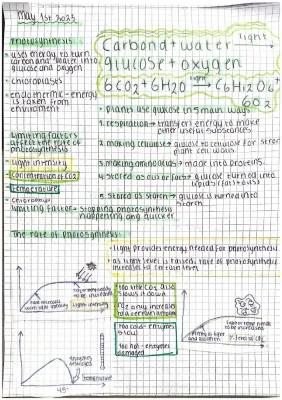 May 1st 2023
Photosynthesis
• uses energy to turn
carbon and water into
glucose and oxygen
• chloroplasts
• endothermic - energy
is taken from
environment
Carbond + water light→
glucose + oxygen
6CO2 + 6H2O light→ C6H12O6 +
6O2
• Plants use glucose in 5 main ways
1. respiration → transfers energy to make
other useful substances
2. making cellulose → glucose to cellulose for
plant cell walls
3. making amino acids → made into proteins.
4. stored as oils or fats → glucose turned into
lipids (fats + oils)
5. stored as starch → glucose is turned into
starch
Limiting factors
affect the rate of
photosynthesis
• Light intensity
• Concentration of CO2
• Temperature
• chlorophyll
limiting factor = stopping photosynthesis
happening any quicker
The rate of photosynthesis
• light provides energy needed for photosynthesis
• as light level is raised, rate of photosynthesis
increases to certain level
rate increases
with light intensity
to be increased
light intensity
• too little CO2 also
slows it down
• CO2 only increases
to a certain amount
• too cold - enzymes
slow
• too hot - enzymes
damaged
enzymes
destroyed
temperature
45°
to be increased
% level of CO2